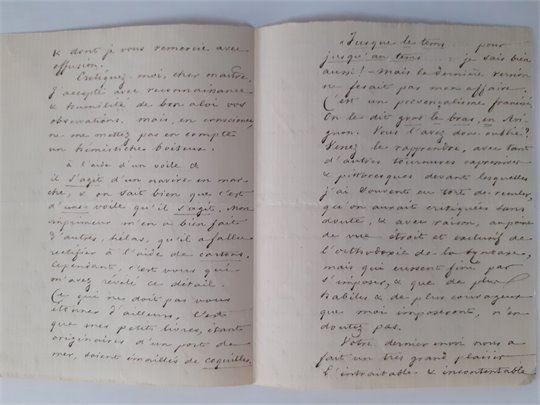 & dont je vous remercie avec
effusion.
Critiquez-moi, cher maître,
J'accepte avec reconnaissance
& humilité de bon aloi vos
observations. mais, en conscience,
ne me mettez pas en compte
un hémistiche boiteux:
à l'aide d'un voile &
il s'agit d'un navire en mar-
che, & on sait bien que c'est
d'une voile qu'il s'agit. Mon
imprimeur m'en a bien fait
d'autres, hélas, qu'il a fallu
rectifier à l'aide de cartons.
Cependant, c'est vous qui
m'avez révélé ce détail.
Ce qui ne doit pas vous
étonner d'ailleurs, c'est
que mes petits livres, étant
originaires d'un port de
mer, soient émaillés de coquilles.
"Jusque le tems pour
jusqu'au tems je sais bien
aussi! - Mais la dernière version
ne fesait pas mon affaire.
C'est un provençalisme francisé
On le dit gros le bras, en Avi-
gnon. Vous l'avez donc oublié?
Venez le rapprendre, avec tant
d'autres tournures expressives
& pittoresques devant lesquelles
j'ai souvent eu tort de reculer,
qu'on aurait critiquées sans
doute, & avec raison, au point
de vue étroit et exclusif de
l'orthodoxie de la syntaxe,
mais qui eussent fini par
s'imposer, & que de plus
habiles & de plus courageux
que moi imposeront, n'en
doutez pas.
Votre dernier envoi nous a
fait un très grand plaisir
L'intraitable & incontentable